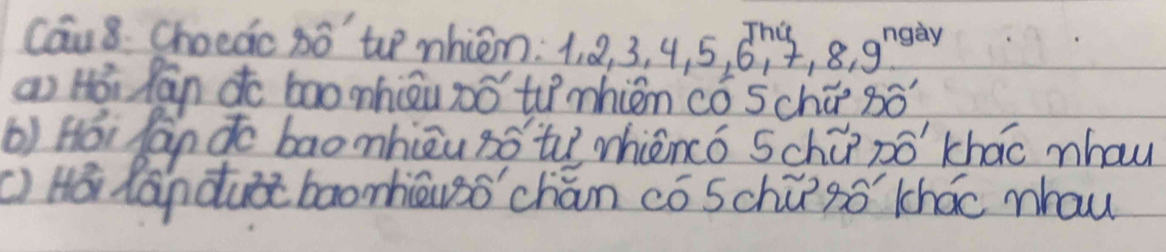 Thứ ngày
Câu 8. Cho các số tự nhiên: 1,2,3,4,5,6,7,8,9
a) Hỏi lập đc bao nhiêu số tự nhiên có 5 chữ số
b) Hỏi lập đc bao nhiêu số tự nhiên có 5 chữ số khác nhau
c) Hỏi lập được bao nhiêu số chẵn có 5 chữ số khác nhau